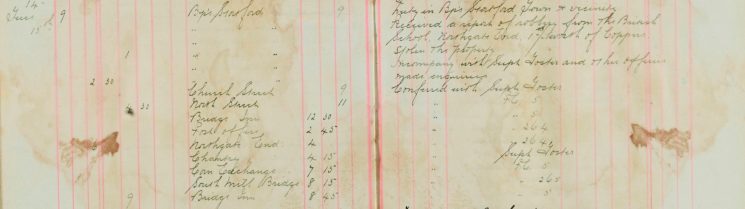 14
Tues 9 Bp's Stortford 9 Duty in Bp's Stortford Town & vicinity
15th " " Received a report of robbery from the Board
" " School, Northgate End, of Copper
1 " " Stolen the property
" " In company with Supt Foster and other officers
2 30 " " made enquiries
Church Street 9 Conferred with Supt Foster
4 30 North Street 11 " PC 5
Bridge Inn 12 30 " " 5
Post office 2 45 " " 264
Northgate End 4 " " 264
Chantry 4 15 Supt Foster
Corn Exchange 7 15 " PC 5
South Mill Bridge 8 15 " " 265
9 Bridge Inn 8 45 " " 5